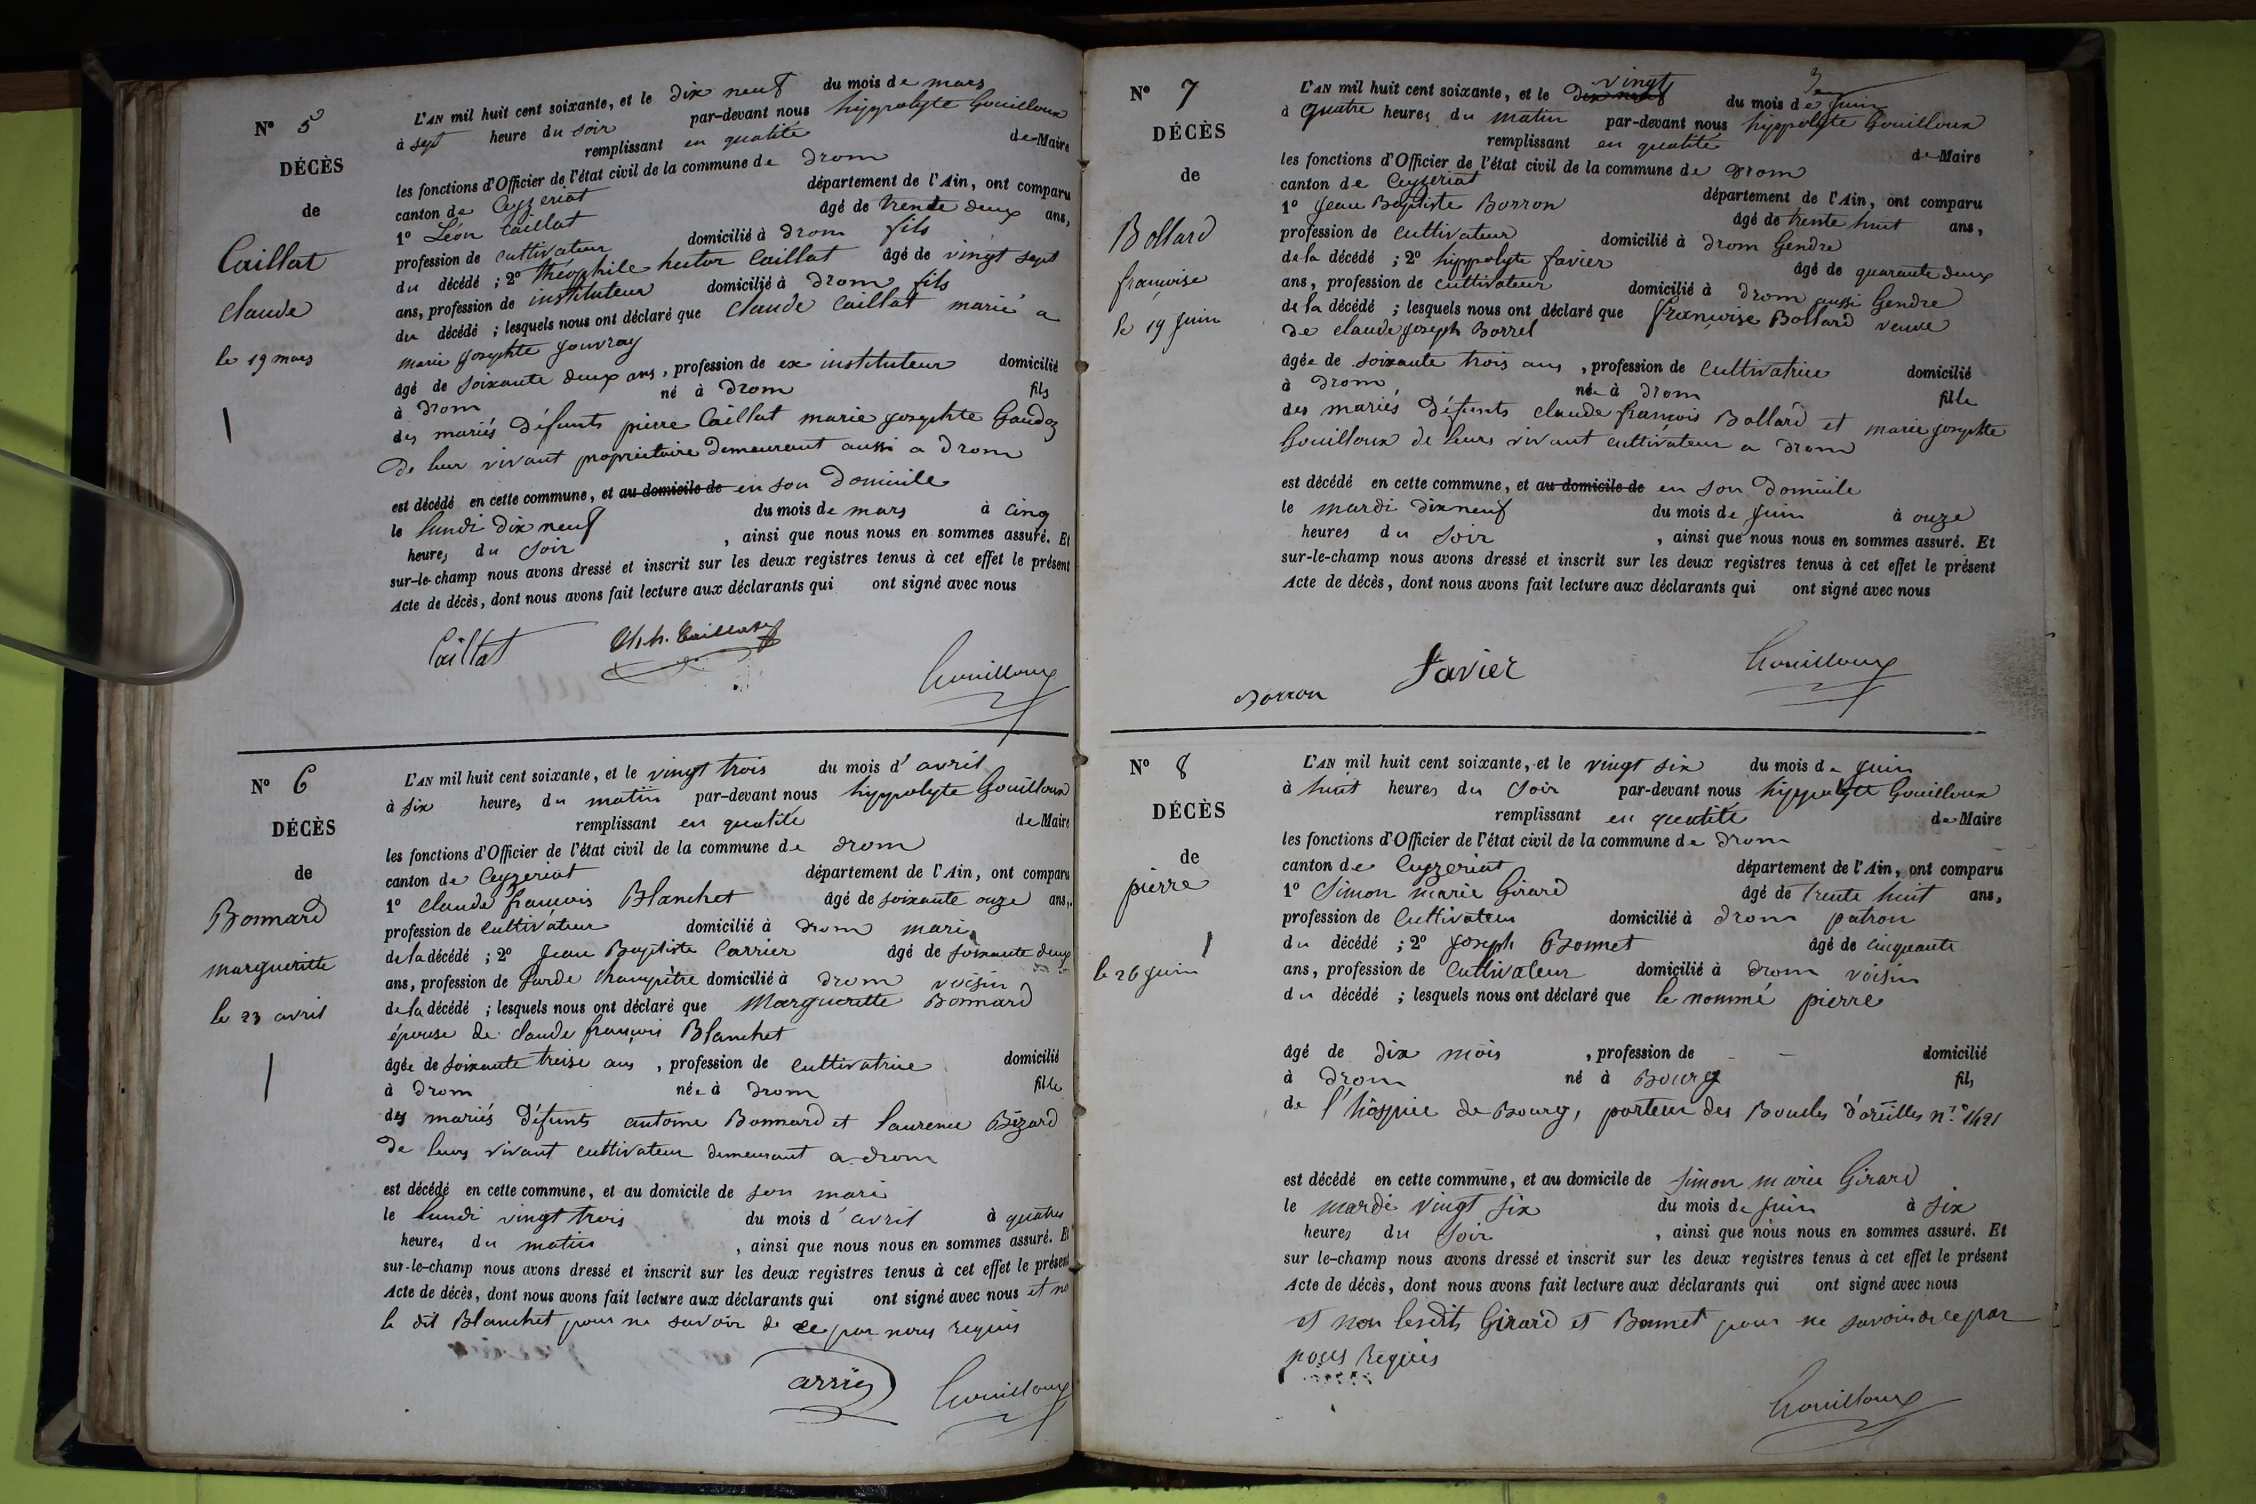 N° 5
DÉCÈS
de
Caillat
claude
le 19 mars
L'AN mil huit cent soixante, et le dix neuf du mois de mars
à sept heure du soir par-devant nous hyppolyte Gouilloux
remplissant en qualité de Maire
les fonctions d'Officier de l'état civil de la commune de Drom
canton de Ceyzeriat département de l'Ain, ont comparu
1° Léon Caillat âgé de trente deux ans,
profession de cultivateur domicilié à Drom fils
du décédé ; 2° théophile hector Caillat âgé de vingt sept
ans, profession de instituteur domicilié à Drom fils
du décédé ; lesquels nous ont déclaré que claude Caillat marié a
marie josephte jouvray
âgé de soixante deux ans, profession de ex instituteur domicilié
à Drom né à Drom fils
des mariés défunts pierre Caillat marie josephte Gaudoz
de leur vivant propriétaire demeurant aussi a Drom
est décédé en cette commune, et au domicile de en son Domicile
le lundi dix neuf du mois de mars à cinq
heures du soir, ainsi que nous nous en sommes assuré. Et
sur-le-champ nous avons dressé et inscrit sur les deux registres tenus à cet effet le présent
Acte de décès, dont nous avons fait lecture aux déclarants qui ont signé avec nous
Caillat Th. h. Caillat Gouilloux
N° 6
DÉCÈS
de
Bonnard
margueritte
le 23 avril
L'AN mil huit cent soixante, et le vingt trois du mois d'avril
à six heures du matin par-devant nous hyppolyte Gouilloux
remplissant en qualité de Maire
les fonctions d'Officier de l'état civil de la commune de Drom
canton de Ceyzeriat département de l'Ain, ont comparu
1° claude françois Blanchet âgé de soixante onze ans,
profession de cultivateur domicilié à Drom mari
de la décédé ; 2° Jean Baptiste Carrier âgé de soixante deux
ans, profession de garde champêtre domicilié à Drom voisin
de la décédé ; lesquels nous ont déclaré que Margueritte Bonnard
épouse de claude françois Blanchet
âgée de soixante treise ans, profession de cultivatrice domicilié
à Drom née à Drom fille
des mariés défunts antoine Bonnard et laurence Bizard
de leurs vivant cultivateur demeurant a Drom
est décédé en cette commune, et au domicile de son mari
le lundi vingt trois du mois d'avril à quatre
heures du matin, ainsi que nous nous en sommes assuré. Et
sur-le-champ nous avons dressé et inscrit sur les deux registres tenus à cet effet le présent
Acte de décès, dont nous avons fait lecture aux déclarants qui ont signé avec nous et no
le dit Blanchet pour ne savoir de ce par nous requis
Carrier Gouilloux
N° 7
DÉCÈS
de
Bollard
françoise
le 19 juin
vingt
L'AN mil huit cent soixante, et le dix neuf du mois de juin
à quatre heures du matin par-devant nous hyppolyte Gouilloux
remplissant en qualité de Maire
les fonctions d'Officier de l'état civil de la commune de Drom
canton de Ceyzeriat département de l'Ain, ont comparu
1° Jean Baptiste Borron âgé de trente huit ans,
profession de cultivateur domicilié à Drom Gendre
de la décédé ; 2° hyppolyte favier âgé de quarante deux
ans, profession de cultivateur domicilié à Drom aussi Gendre
de la décédé ; lesquels nous ont déclaré que françoise Bollard veuve
de claude joseph Borrel
âgée de soixante trois ans, profession de cultivatrice domicilié
à Drom née à Drom fille
des mariés défunts claude françois Bollard et marie josephte
Gouilloux de leurs vivant cultivateur a Drom
est décédé en cette commune, et au domicile de en son Domicile
le mardi dix neuf du mois de juin à onze
heures du soir, ainsi que nous nous en sommes assuré. Et
sur-le-champ nous avons dressé et inscrit sur les deux registres tenus à cet effet le présent
Acte de décès, dont nous avons fait lecture aux déclarants qui ont signé avec nous
Borron favier Gouilloux
N° 8
DÉCÈS
de
pierre
le 26 juin
L'AN mil huit cent soixante, et le vingt six du mois de juin
à huit heures du soir par-devant nous hyppolyte Gouilloux
remplissant en qualité de Maire
les fonctions d'Officier de l'état civil de la commune de Drom
canton de Ceyzeriat département de l'Ain, ont comparu
1° Simon marie Girard âgé de trente huit ans,
profession de cultivateur domicilié à Drom patron
du décédé ; 2° joseph Bonnet âgé de cinquante
ans, profession de cultivateur domicilié à Drom voisin
du décédé ; lesquels nous ont déclaré que le nommé pierre
âgé de dix mois, profession de - - domicilié
à Drom né à Bourg fils
de l'hospice de Bourg, porteur des Boucles d'oreilles n.° 1421
est décédé en cette commune, et au domicile de simon marie Girard
le mardi vingt six du mois de juin à six
heures du soir, ainsi que nous nous en sommes assuré. Et
sur le-champ nous avons dressé et inscrit sur les deux registres tenus à cet effet le présent
Acte de décès, dont nous avons fait lecture aux déclarants qui ont signé avec nous
et non lesdits Girard et Bonnet pour ne savoir de ce par
nous Requis
Gouilloux